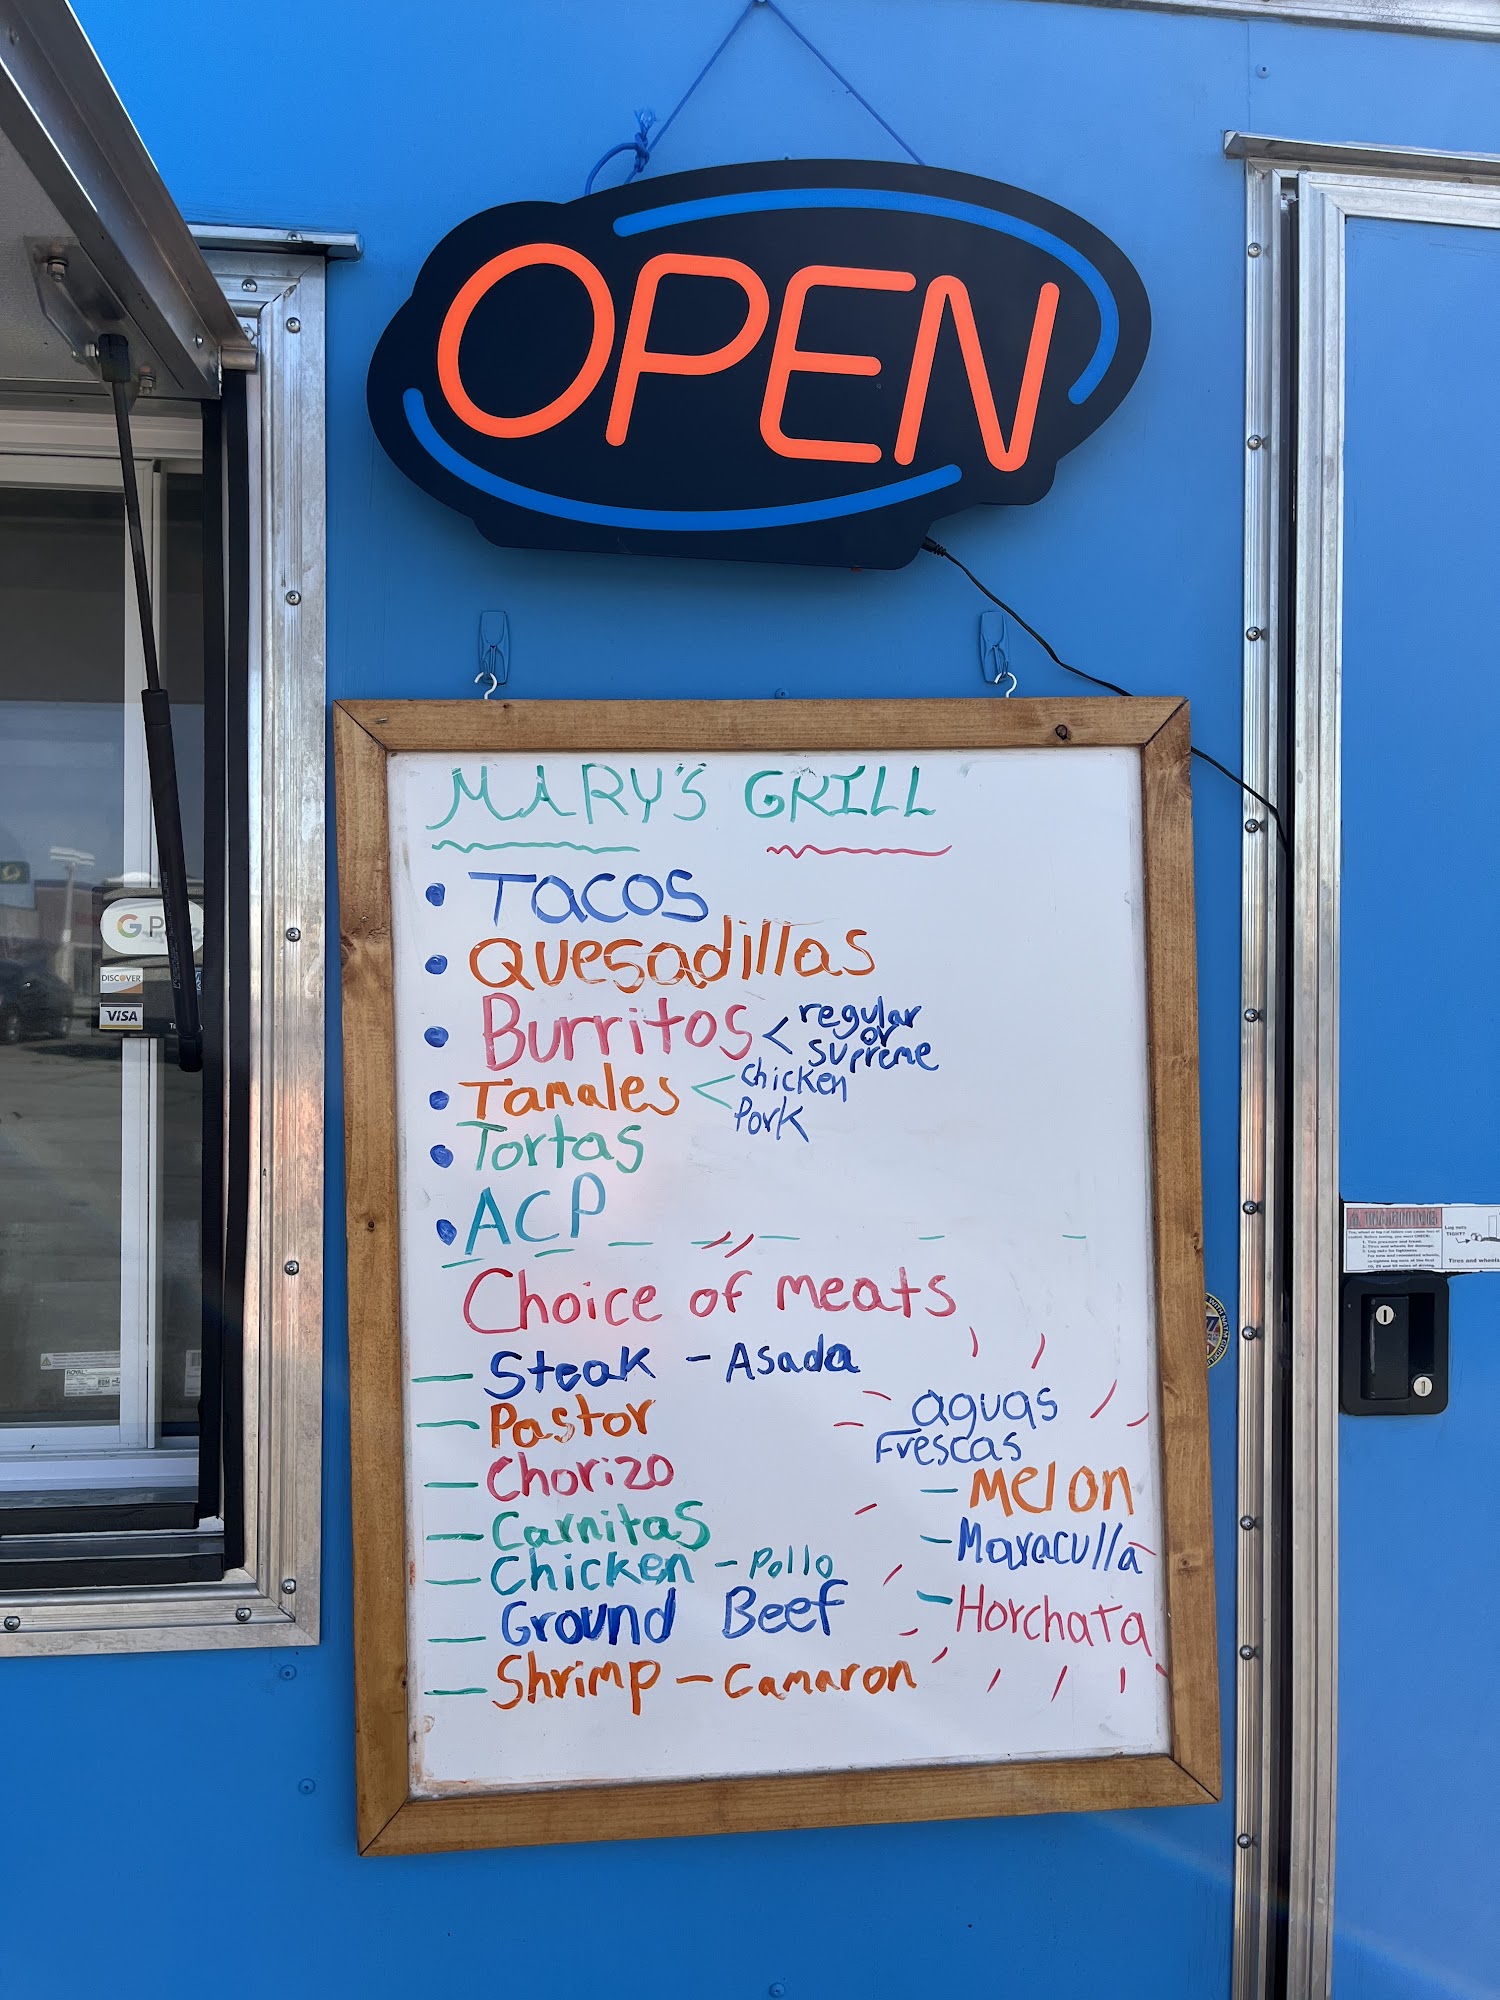 OPEN
MARY'S GRILL
• TACOS
• Quesadillas
• Burritos < regular
or
supreme
• Tamales < chicken
Pork
• Tortas
• ACP
Choice of meats
— Steak - Asada
— Pastor
— Chorizo
— Carnitas
— Chicken - Pollo
— Ground Beef
— Shrimp - Camaron
aguas
Frescas
- Melon
- Maraculla
- Horchata
G P
DISCOVER
VISA
WARNING
Lug nuts
TIGHT?
Tires and wheels